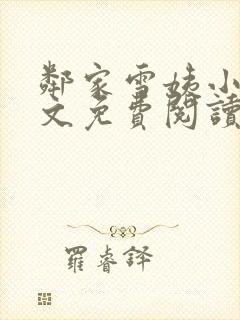 鄰家雪姨小
文免費閱讀
羅睿鐸